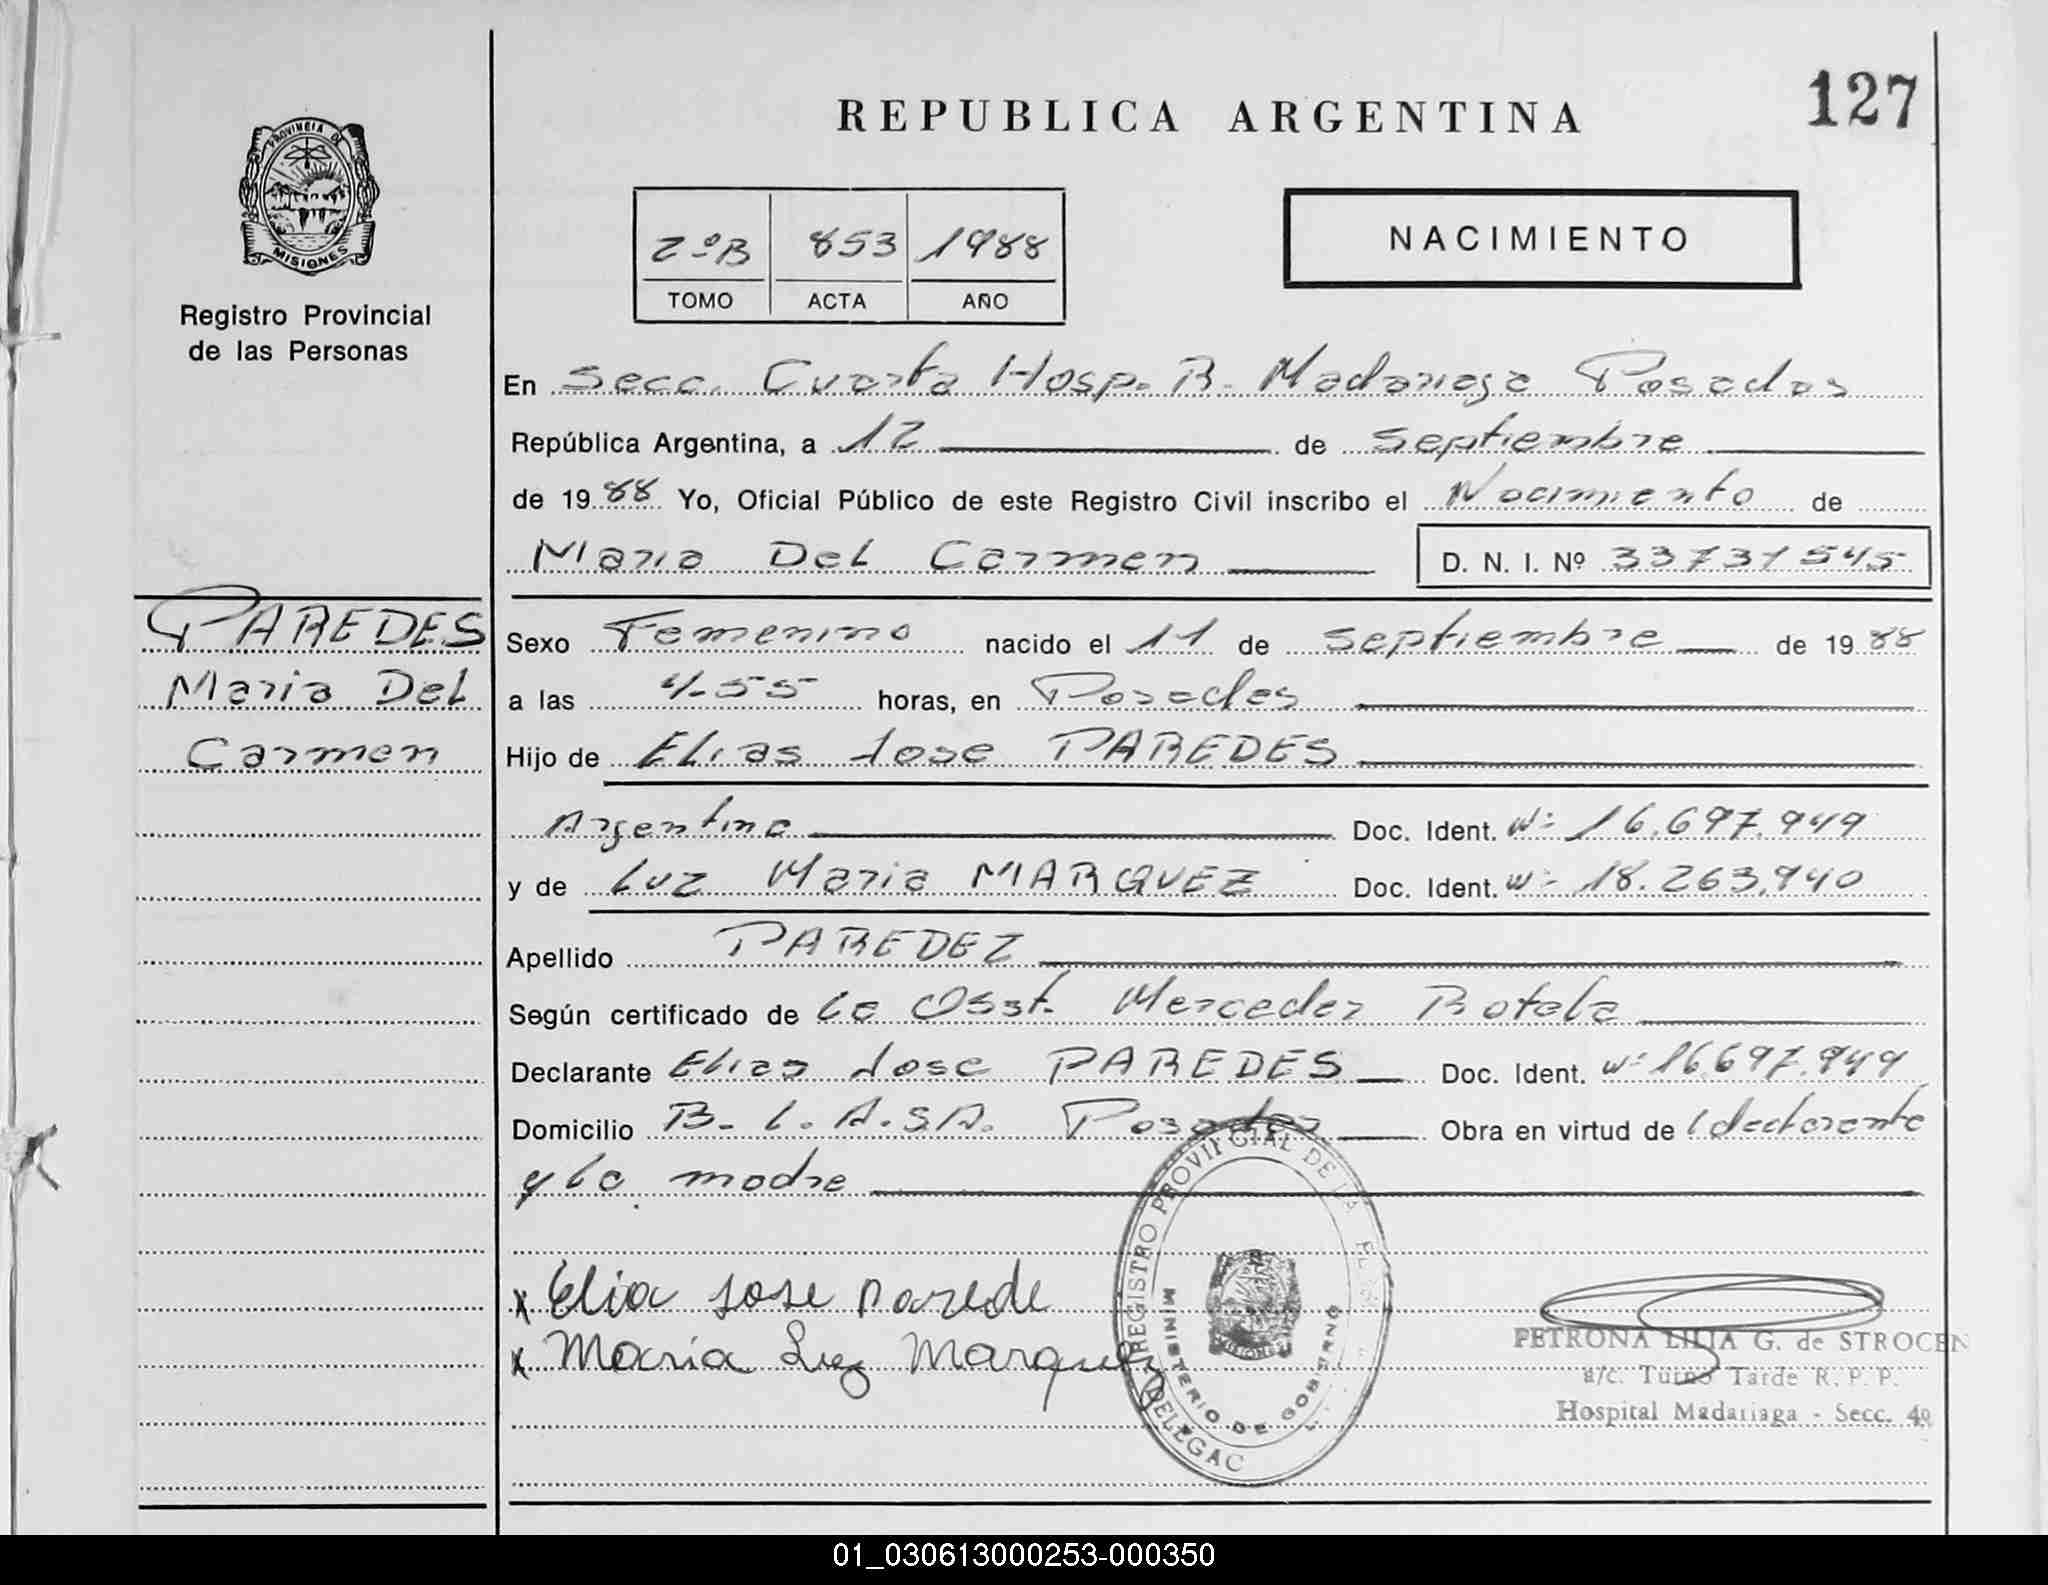 127
REPUBLICA ARGENTINA
PROVINCIA DE
MISIONES
Registro Provincial
de las Personas
2ºB 853 1988
TOMO ACTA AÑO
NACIMIENTO
En Secc. Cuarta Hosp. R. Madariaga Posadas
República Argentina, a 12 de Septiembre
de 1988 Yo, Oficial Público de este Registro Civil inscribo el Nacimiento de
Maria Del Carmen D. N. I. Nº 33737545
PAREDES
Maria Del
Carmen
Sexo Femenino nacido el 11 de Septiembre de 1988
a las 4-55 horas, en Posadas
Hijo de Elias Jose PAREDES
Argentina Doc. Ident. Nº 16.697.949
y de Luz Maria MARQUEZ Doc. Ident. Nº 18.263.940
Apellido PAREDEZ
Según certificado de la Obst. Mercedes Botela
Declarante Elias Jose PAREDES Doc. Ident. Nº 16.697.949
Domicilio B. L. A. SA. Posadas Obra en virtud de declarante
y la madre
x Elia Jose Parede
x Maria Luz Marquez
REGISTRO PROVINCIAL DE LA
MINISTERIO DE GOBIERNO
DELEGAC
PETRONA LILIA G. de STROCEN
a/c. Turno Tarde R. P. P.
Hospital Madariaga - Secc. 4º
01_030613000253-000350